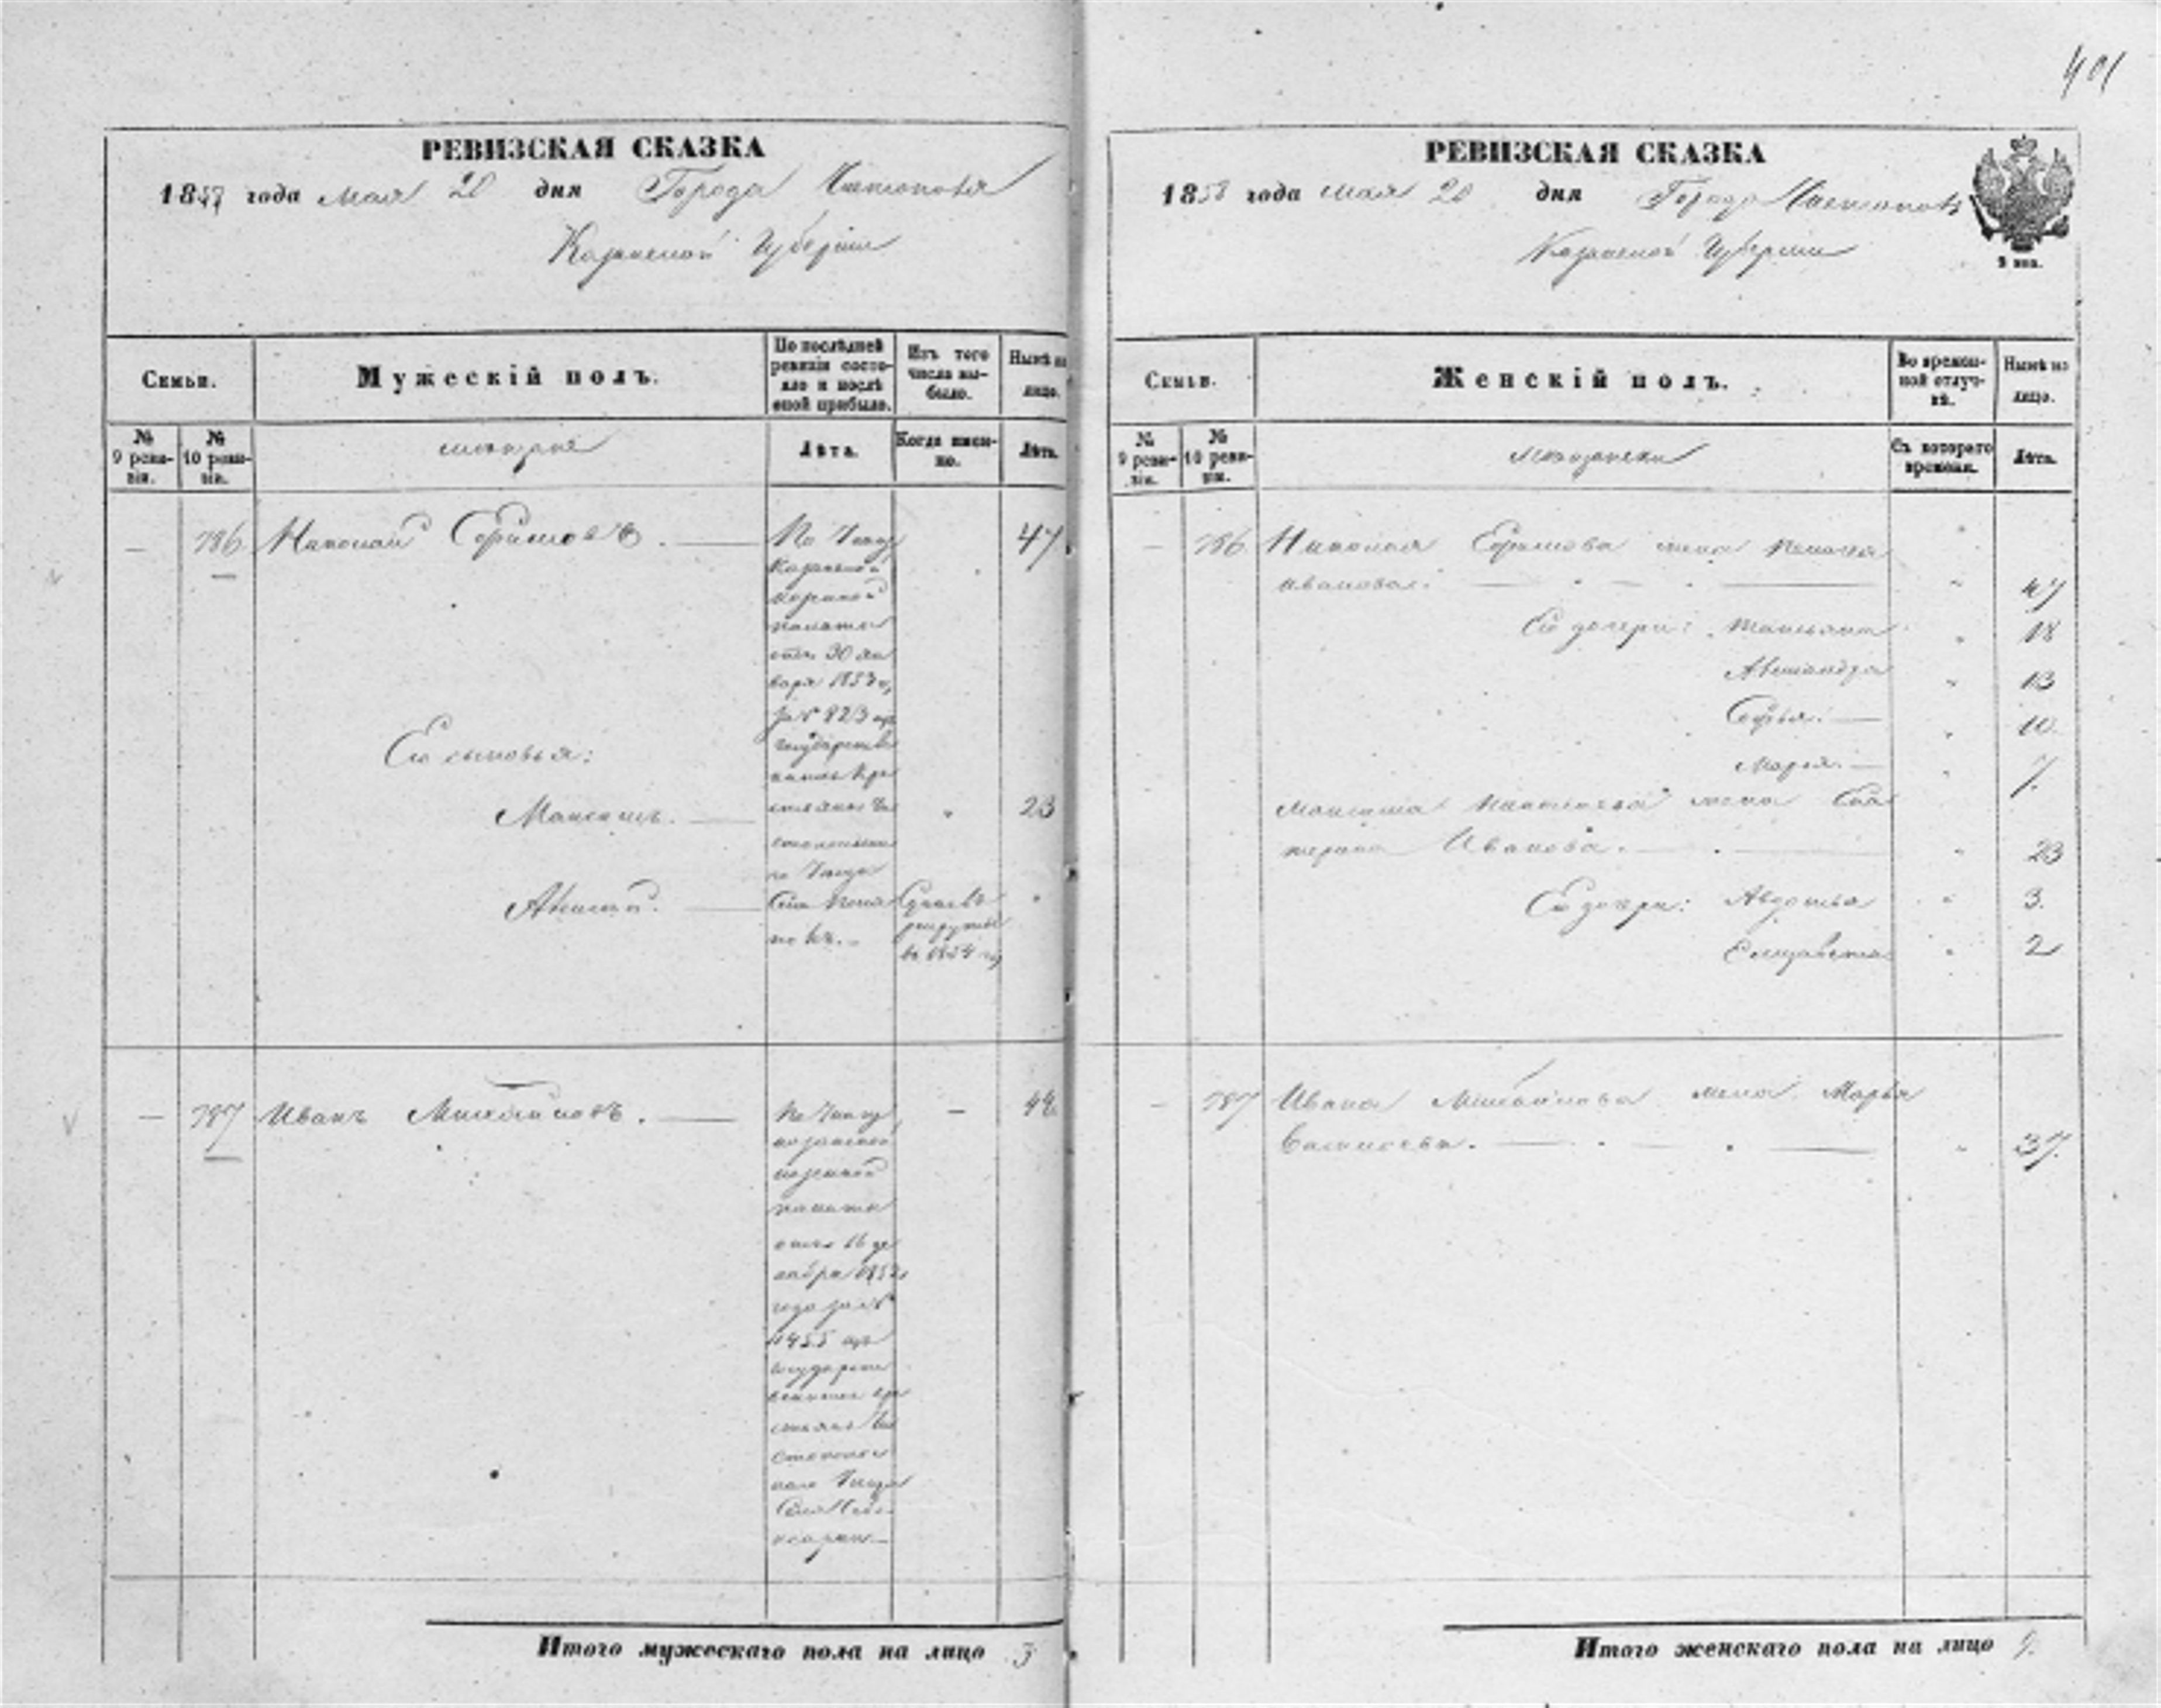 401
РЕВИЗСКАЯ СКАЗКА
1858 года мая 20 дня Города Чистополя
Казанской Губернiи
Семьи.
Мужескiй полъ.
По послѣдней ревизiи состояло и послѣ оной прибыло.
Изъ того числа выбыло.
Нынѣ на лицо.
№ 9 ревизiи.
№ 10 ревизiи.
мѣщане
Лѣта.
Когда именно.
Лѣта.
— 786 Николай Ефимовъ. — 47
По Указу
Казенной
палаты
отъ 30 ян
варя 1853 г,
за № 823 изъ
государстве
Его сыновья:
Максимъ. — " 23
по Указу
Алексѣй. —
Села
Сданъ въ
рекруты
въ 1854 г,
— 787 Иванъ Михайловъ. — — 44
По Указу
казанской
казенной
палаты
отъ 16 де
кабря 1852
года за №
4455 изъ
государст
Села
Итого мужескаго пола на лицо 3
РЕВИЗСКАЯ СКАЗКА
1858 года мая 20 дня Города Чистополя
Казанской Губернiи
9 коп.
Семьи.
Женскiй полъ.
Во временной отлучкѣ.
Нынѣ на лицо.
№ 9 ревизiи.
№ 10 ревизiи.
мѣщанки
Съ котораго времени.
Лѣта.
— 786 Николая Ефимова жена Пелагея
Иванова. — " 47
Его дочери: Татьяна " 18
Александра " 13
Софья. — " 10
Марья. — " 7.
Максима Николаева жена Ека
терина Иванова. — " 23
Его дочери: Авдотья " 3.
Елизавета " 2
— 787 Ивана Михайлова жена Марья
Васильева. — " 37.
Итого женскаго пола на лицо 9.